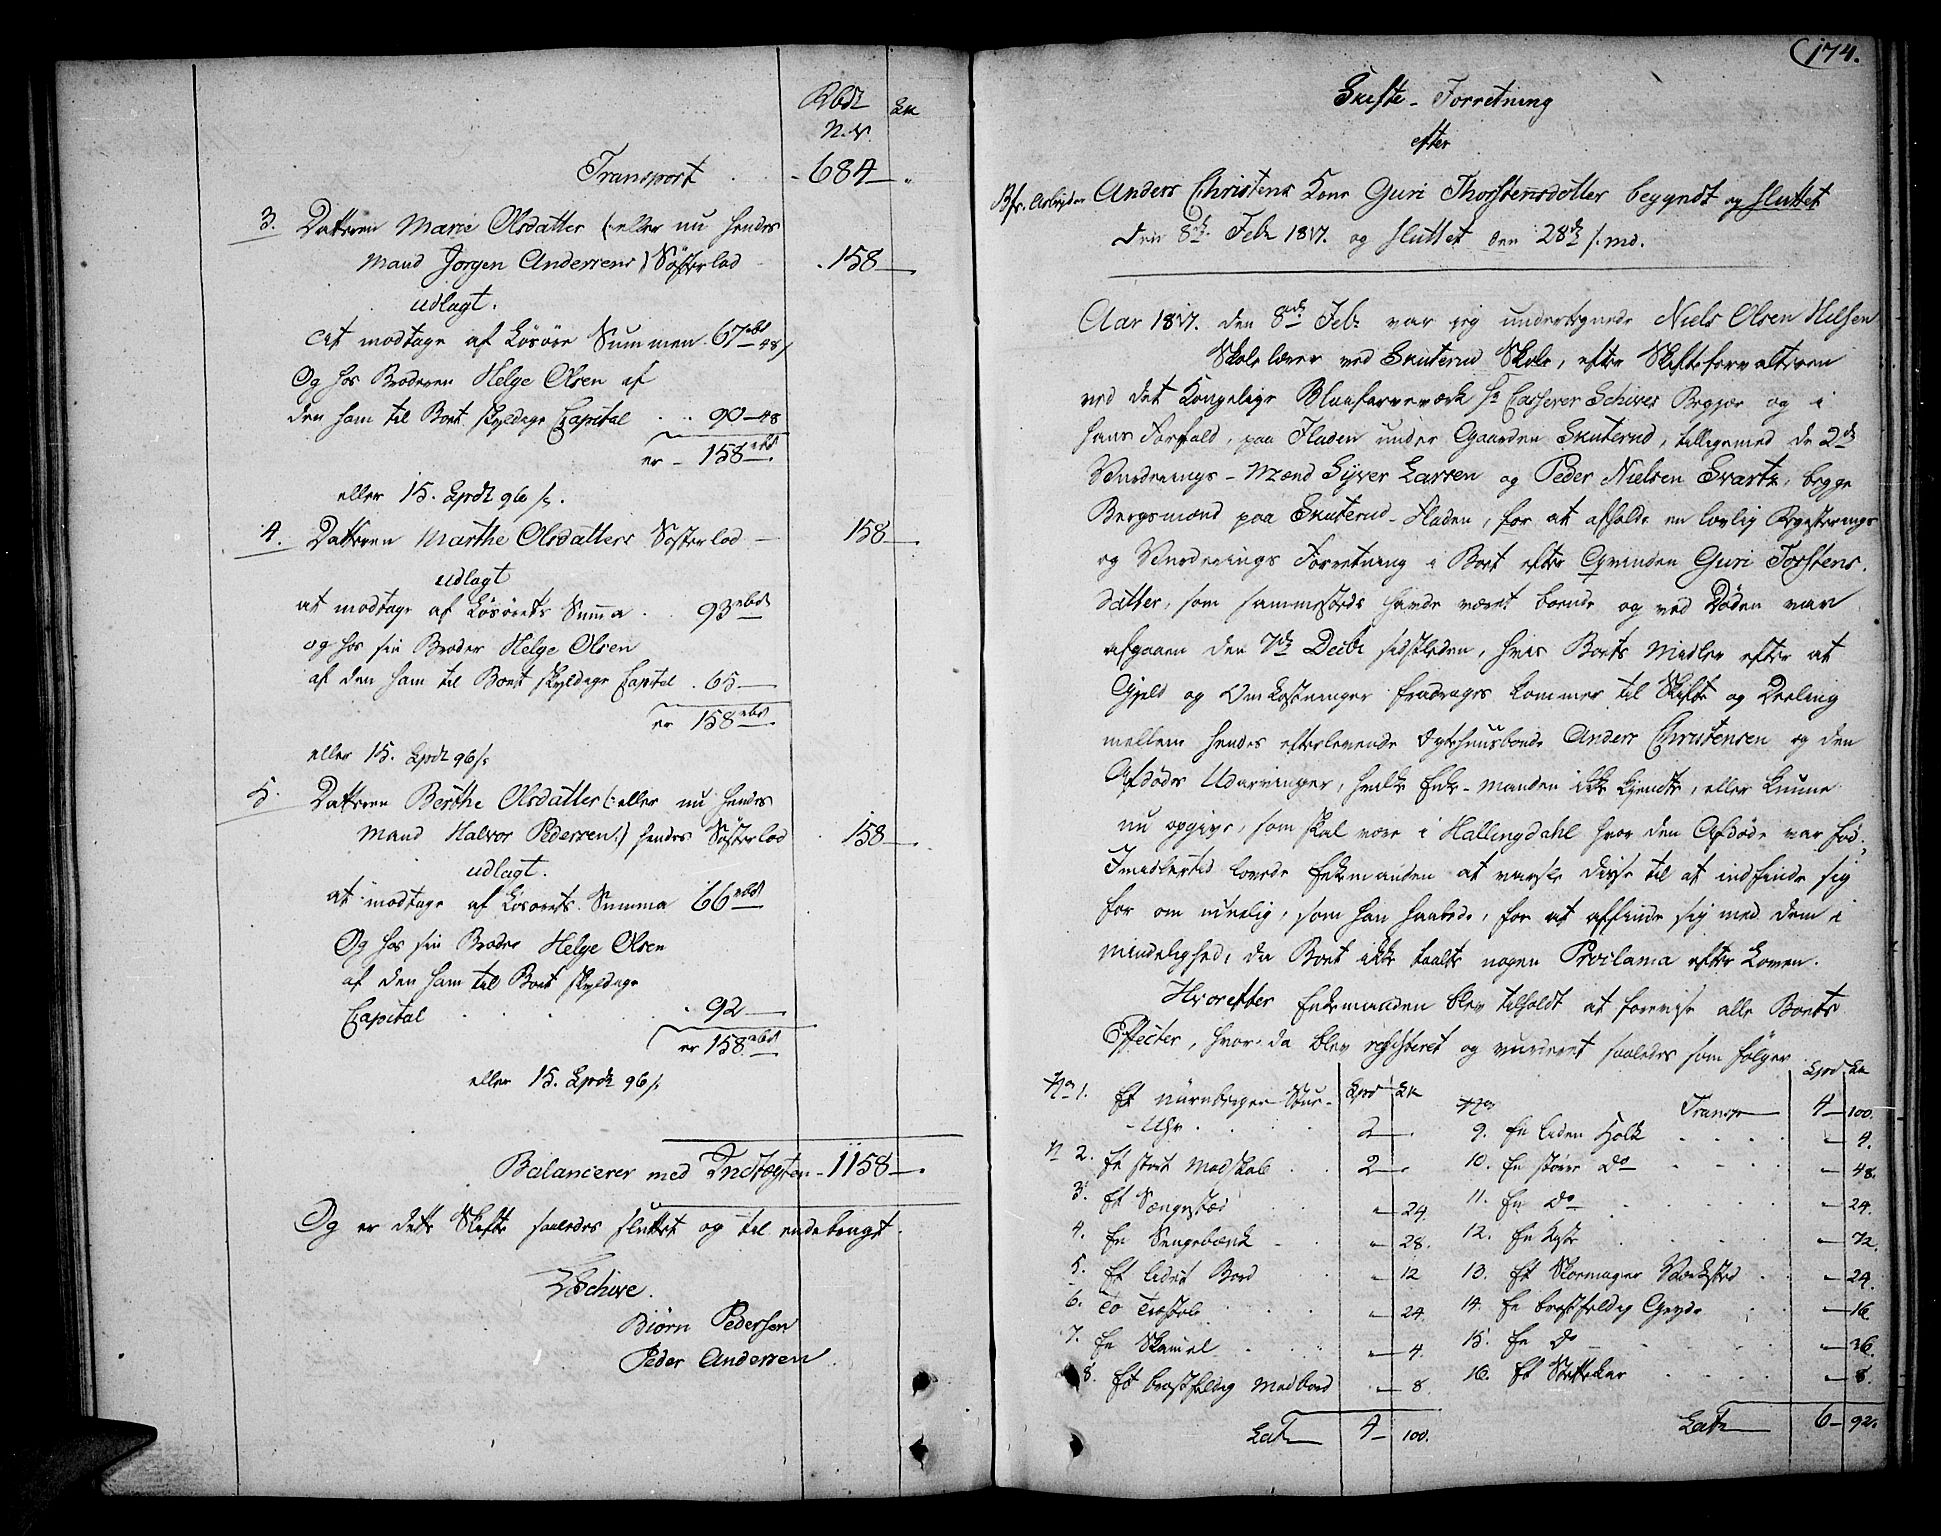 Rbdl Sk
N.V.
Transport . . 684 — "
3. Datteren Marie Olsdatter (: eller nu hendes
Mand Jørgen Andersens) Søsterlod . 158 —
udlagt.
At modtage af Løsøre Summen 67 rbd 48 s
Og hos Broderen Helge Olsen af
den ham til Boet skyldige Capital . . 90 — 48
er — 158 rbd.
eller 15. Spdl 96 s.
4. Datteren Marthe Olsdatters Søsterlod — 158 —
udlagt
at modtage af Løsørets Summa . 93 rbdl
og hos sin Broder Helge Olsen
af den ham til Boet skyldige Capital . 65 —
er 158 rbd.
eller 15. Spdl 96 s.
5. Datteren Berthe Olsdatter (: eller nu hendes
Mand Halvor Pedersen :) hendes Søsterlod . 158 —
udlagt.
at modtage af Løsørets Summa 66 rbdl
Og hos sin Broder Helge Olsen
af den ham til Boet skyldige
Capital . . . . . 92 —
er 158 rbd
eller 15. Spdl 96 s.
Balancerer med Indtægten — 1158 —.
Og er dette Skifte saaledes sluttet og til endebragt.
Schive.
Biørn Pedersen
Peder Andersen
174.
Skifte - Forretning
efter
Anders Christens Kone Guri Thorstensdotter begyndt og sluttet
den 8de Febr 1817. og sluttet den 28de s. md.
Aar 1817. den 8de Febr var jeg undertegnede Niels Olsen Hilsen
Skolelærer ved Skuterud Skole, efter Skifteforvalteren
ved det Kongelige Blaafarveværk Hr Casserer Schives Begjær og i
hans Forfald, paa Fladen under Gaarden Skuterud, tilligemed de 2de
Vurderings-Mænd Syver Larsen og Peder Nielsen Svarte, begge
Bergsmænd paa Skuterud-Fladen, for at afholde en lovlig Registerings
og Vurderings Forretning i Boet efter Qvinden Guri Torstens-
datter, som sammesteds havde været boende og ved Døden var
afgaaen den 7de Decbr sidstleden, hvis Boets Midler efter at
Gjeld og Omkostninger fradrages kommer til Skifte og Deeling
mellem hendes efterlevende Ægtehuusbonde Anders Christensen og den
Afdødes Udarvinger, hvilke Enke-manden ikke kjendte, eller kunne
nu opgive, som skal være i Hallingdahl hvor den Afdøde var fød;
Imidlertid lovede Enkemanden at varsle disse til at indfinde sig
for om muelig, som han haabede, for at affinde sig med dem i
Mindelighed, da Boet ikke taalte nogen Proclama efter Loven.
Hvorefter Enkemanden blev tilholdt at forevise alle Boets
Effecter, hvor-da blev registeret og vurderet saaledes som følger
Spd Sk
No 1. Et nürnberger Stue-
-Uhr . . . . 2 —.
N 2. Et stort Madskab . . 2 —.
3. Et Sængested . . " — 24.
4. En Sengebænk — . " — 28.
5. Et lidet Bord . " — 12
6. To Træstole . . . " — 24.
7. En Skamel . . . " — 4.
8. Et brøstfeldig Madbord . " — 8.
Lat. 4 — 100.
Spd Sk
No Transp. 4 — 100.
9. En liden Holk . . . . " — 4.
10. En større Do — . . . " — 48.
11. En Do . . . . " — 24.
12. En Kiste . . . . " — 72.
13. Et Skomager Værksted . . " — 24.
14. En brøstfeldig Gryde . . " — 16.
15. En Do — . . . . " — 36.
16. Et Støttekar . . . . " — 8.
Lat. 6 — 92.